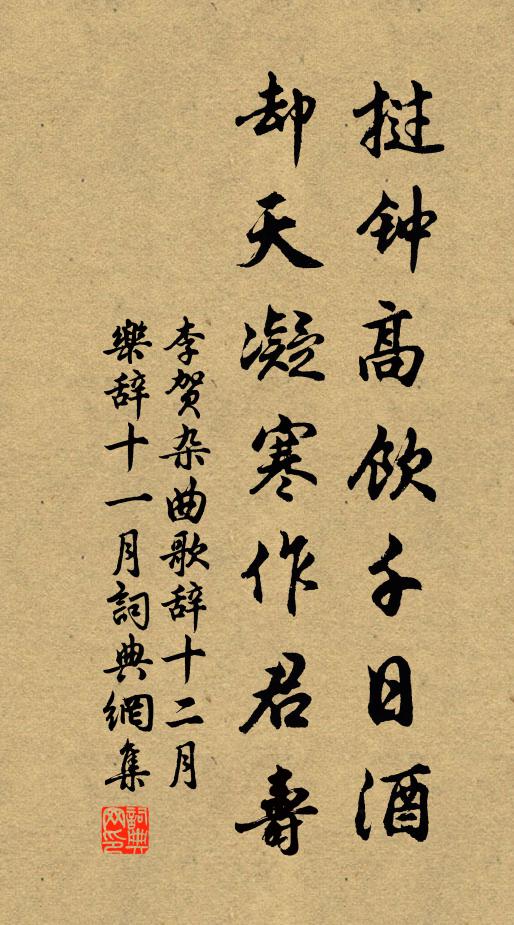 挞钟高饮千日酒
却天凝寒作君寿
李贺杂曲歌辞十二月
樂辞十一月詞典網集
詞典
网印